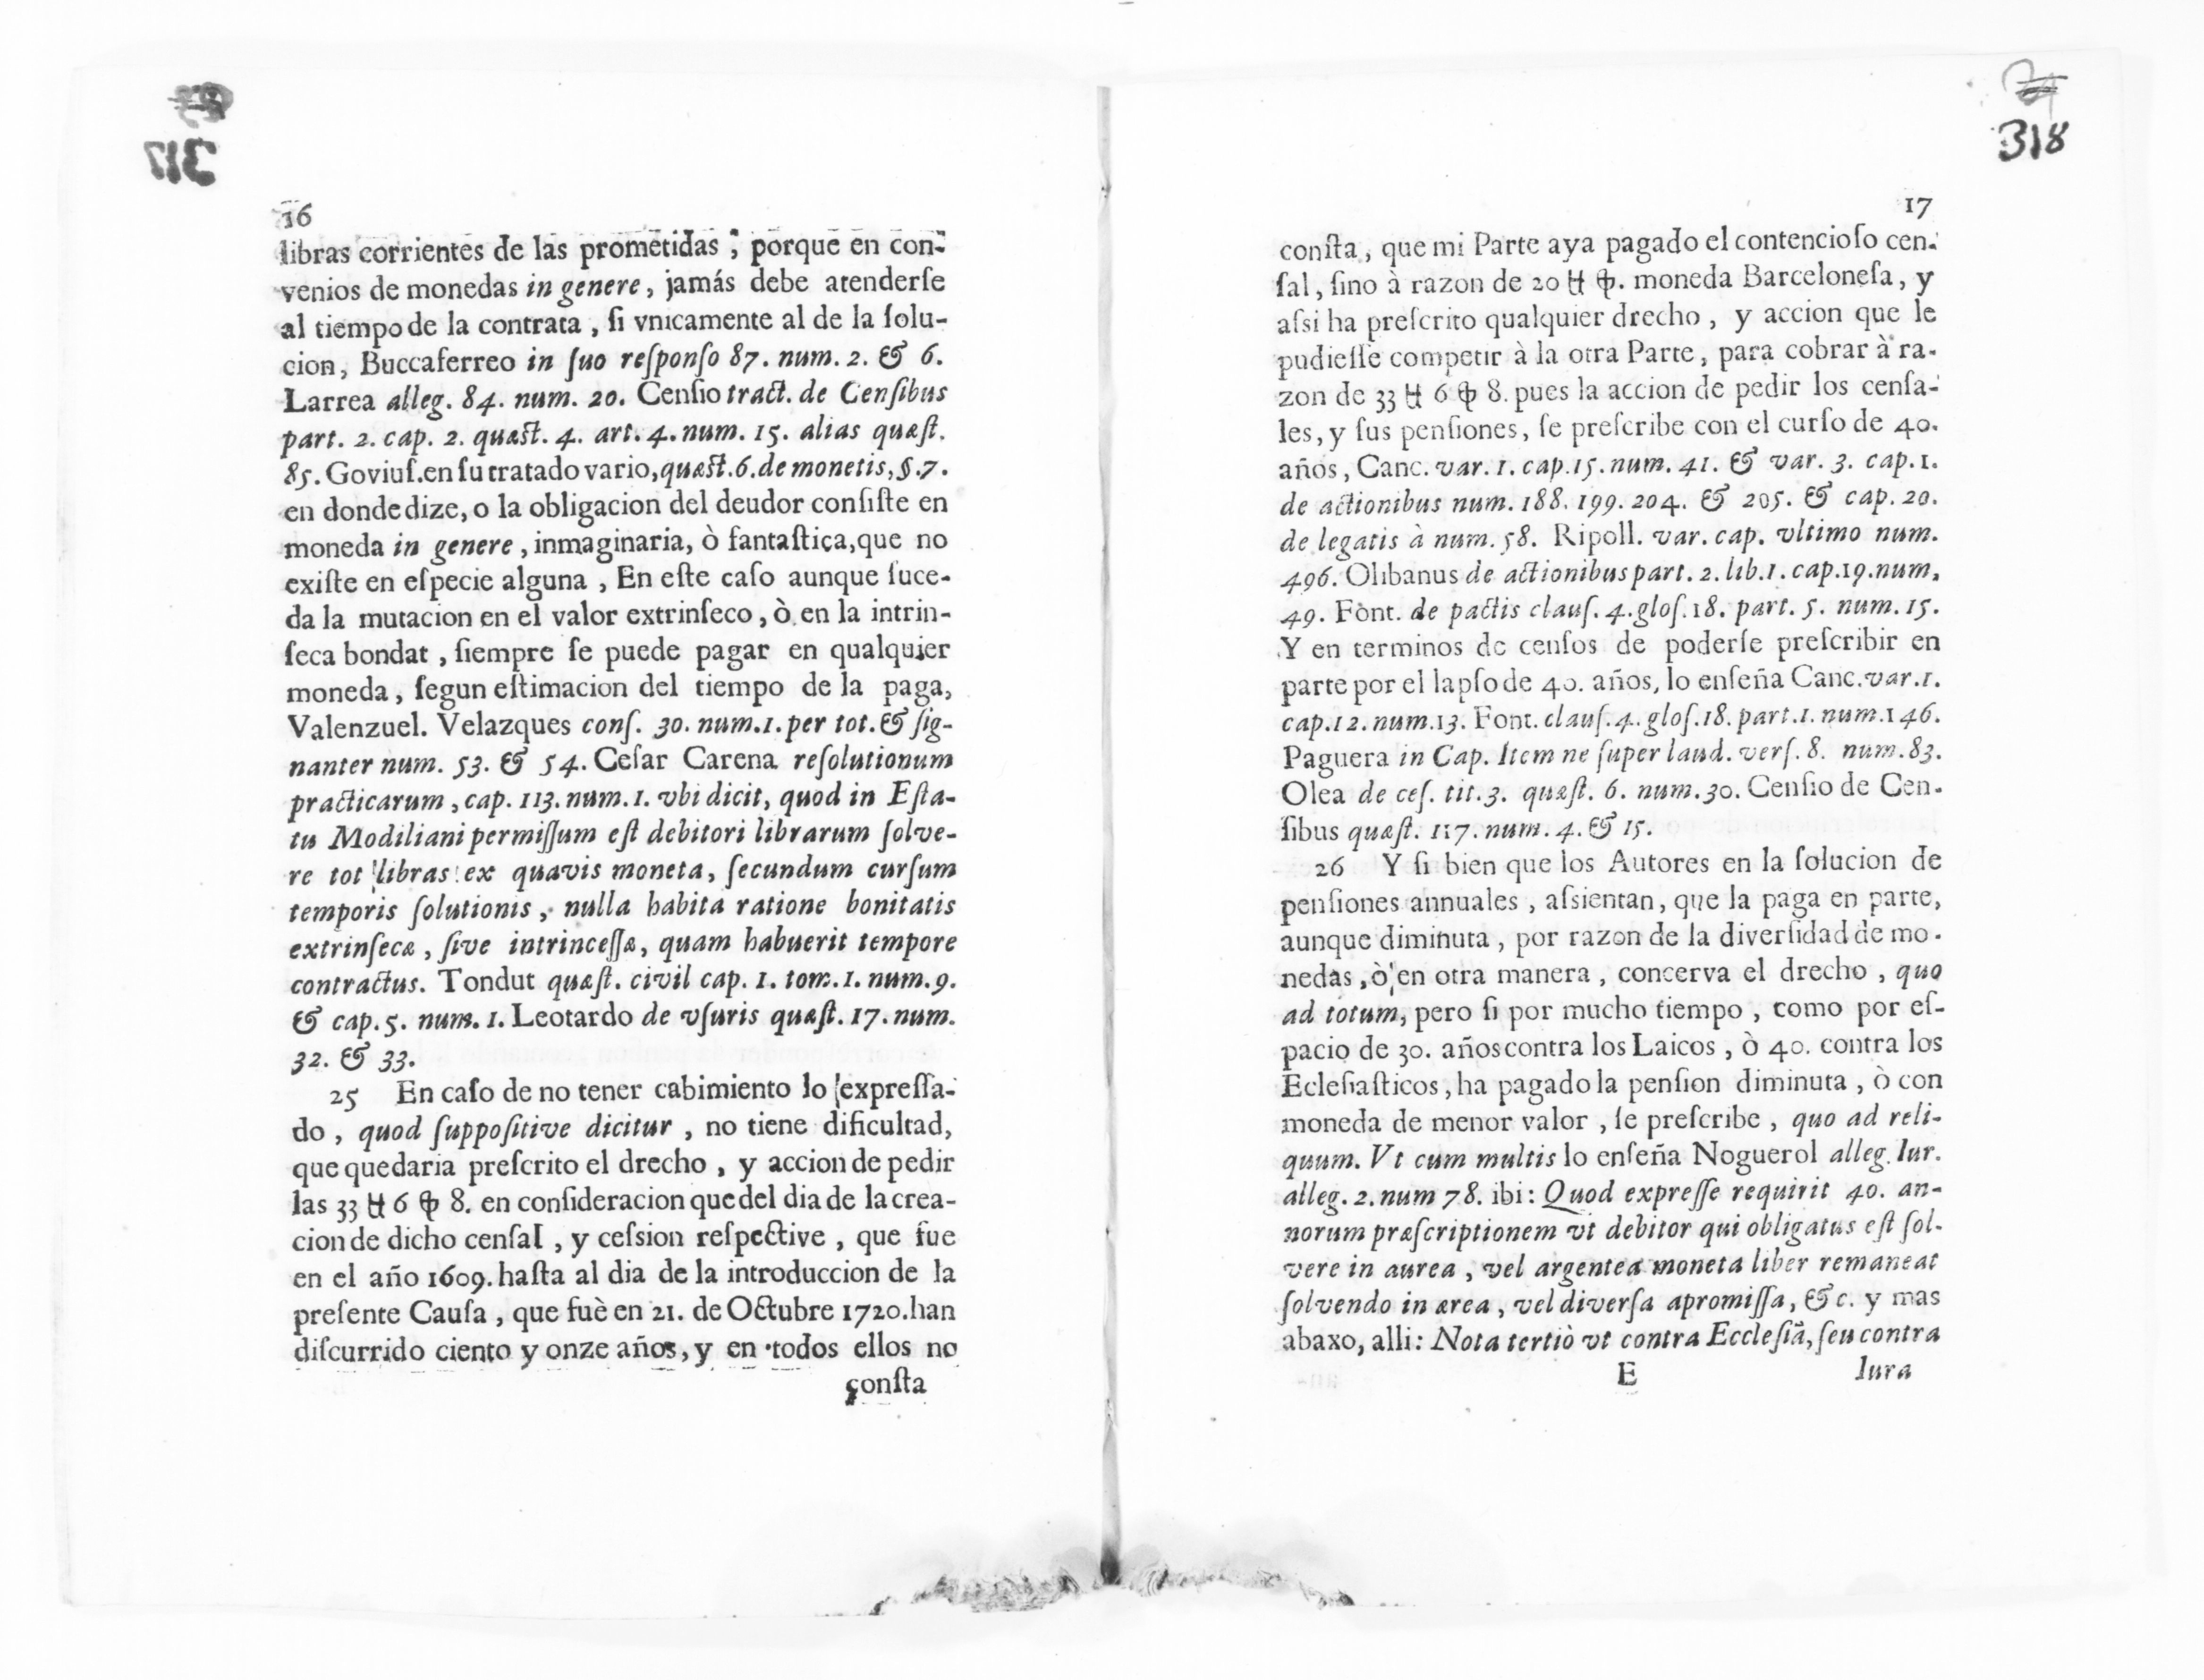 317
318
16
libras corrientes de las prometidas ; porque en con-
venios de monedas in genere, jamás debe atenderſe
al tiempo de la contrata , ſi vnicamente al de la ſolu-
cion, Buccaferreo in ſuo reſponſo 87. num. 2. & 6.
Larrea alleg. 84. num. 20. Cenſio tract. de Cenſibus
part. 2. cap. 2. quæst. 4. art. 4. num. 15. alias quæſt.
85. Goviuſ. en ſu tratado vario, quæst. 6. de monetis, §. 7.
en donde dize, o la obligacion del deudor conſiſte en
moneda in genere , inmaginaria, ò fantaſtica, que no
exiſte en eſpecie alguna , En eſte caſo aunque ſuce-
da la mutacion en el valor extrinſeco , ò en la intrin-
ſeca bondat , ſiempre ſe puede pagar en qualquier
moneda , ſegun eſtimacion del tiempo de la paga,
Valenzuel. Velazques conſ. 30. num. 1. per tot. & ſig-
nanter num. 53. & 54. Ceſar Carena reſolutionum
practicarum , cap. 113. num. 1. vbi dicit, quod in Eſta-
tu Modiliani permiſſum eſt debitori librarum ſolve-
re tot libras ex quavis moneta, ſecundum curſum
temporis ſolutionis , nulla habita ratione bonitatis
extrinſecæ , ſive intrinceſſæ, quam habuerit tempore
contractus. Tondut quæſt. civil cap. 1. tom. 1. num. 9.
& cap. 5. num. 1. Leotardo de vſuris quæſt. 17. num.
32. & 33.
25 En caſo de no tener cabimiento lo expreſſa-
do , quod ſuppoſitive dicitur , no tiene dificultad,
que quedaria preſcrito el drecho , y accion de pedir
las 33 ₶ 6 ꝑ 8. en conſideracion que del dia de la crea-
cion de dicho cenſal , y ceſsion reſpective , que fue
en el año 1609. haſta al dia de la introduccion de la
preſente Cauſa , que fuè en 21. de Octubre 1720. han
diſcurrido ciento y onze años, y en todos ellos no
conſta
17
conſta , que mi Parte aya pagado el contencioſo cen-
ſal , ſino à razon de 20 ₶ ꝑ. moneda Barceloneſa, y
aſsi ha preſcrito qualquier drecho , y accion que le
pudieſſe competir à la otra Parte, para cobrar à ra-
zon de 33 ₶ 6 ꝑ 8. pues la accion de pedir los cenſa-
les, y ſus penſiones, ſe preſcribe con el curſo de 40.
años, Canc. var. 1. cap. 15. num. 41. & var. 3. cap. 1.
de actionibus num. 188. 199. 204. & 205. & cap. 20.
de legatis à num. 58. Ripoll. var. cap. vltimo num.
496. Olibanus de actionibus part. 2. lib. 1. cap. 19. num,
49. Fònt. de pactis clauſ. 4. gloſ. 18. part. 5. num. 15.
Y en terminos de cenſos de poderſe preſcribir en
parte por el lapſo de 40. años, lo enſeña Canc. var. 1.
cap. 12. num. 13. Font. clauſ. 4. gloſ. 18. part. 1. num. 146.
Paguera in Cap. Item ne ſuper laud. verſ. 8. num. 83.
Olea de ceſ. tit. 3. quæſt. 6. num. 30. Cenſio de Cen-
ſibus quæſt. 117. num. 4. & 15.
26 Y ſi bien que los Autores en la ſolucion de
penſiones annuales , aſsientan, que la paga en parte,
aunque diminuta , por razon de la diverſidad de mo-
nedas , ò en otra manera , concerva el drecho , quo
ad totum, pero ſi por mucho tiempo , como por eſ-
pacio de 30. años contra los Laicos , ò 40. contra los
Ecleſiaſticos, ha pagado la penſion diminuta , ò con
moneda de menor valor , ſe preſcribe , quo ad reli-
quum. Vt cum multis lo enſeña Noguerol alleg. Iur.
alleg. 2. num 78. ibi: Quod expreſſe requirit 40. an-
norum præſcriptionem vt debitor qui obligatus eſt ſol-
vere in aurea , vel argentea moneta liber remaneat
ſolvendo in ærea , vel diverſa apromiſſa, &c. y mas
abaxo, alli: Nota tertiò vt contra Eccleſiã, ſeu contra
E Iura